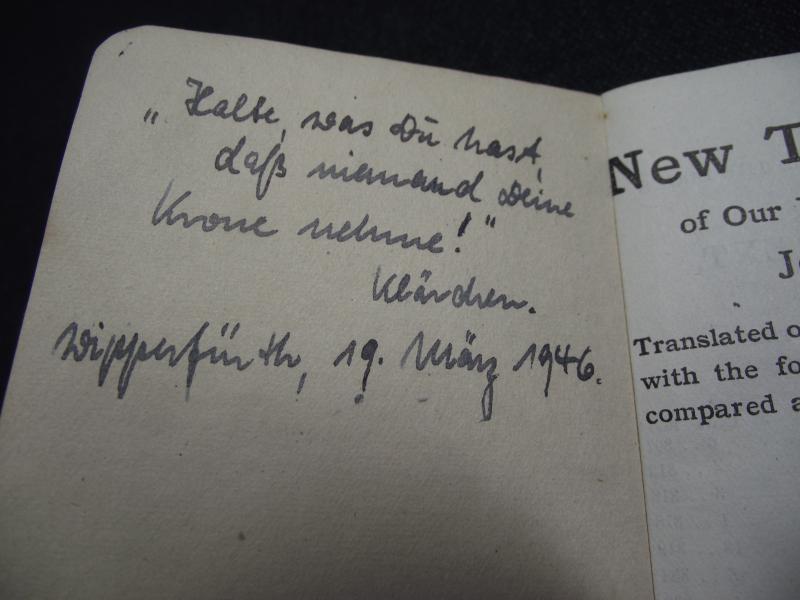 „Halte, was Du hast,
daß niemand Deine
Krone nehme!“
Klärchen.
Wipperfürth, 19. März 1946.
New T
of Our
Je
Translated o
with the fo
compared a